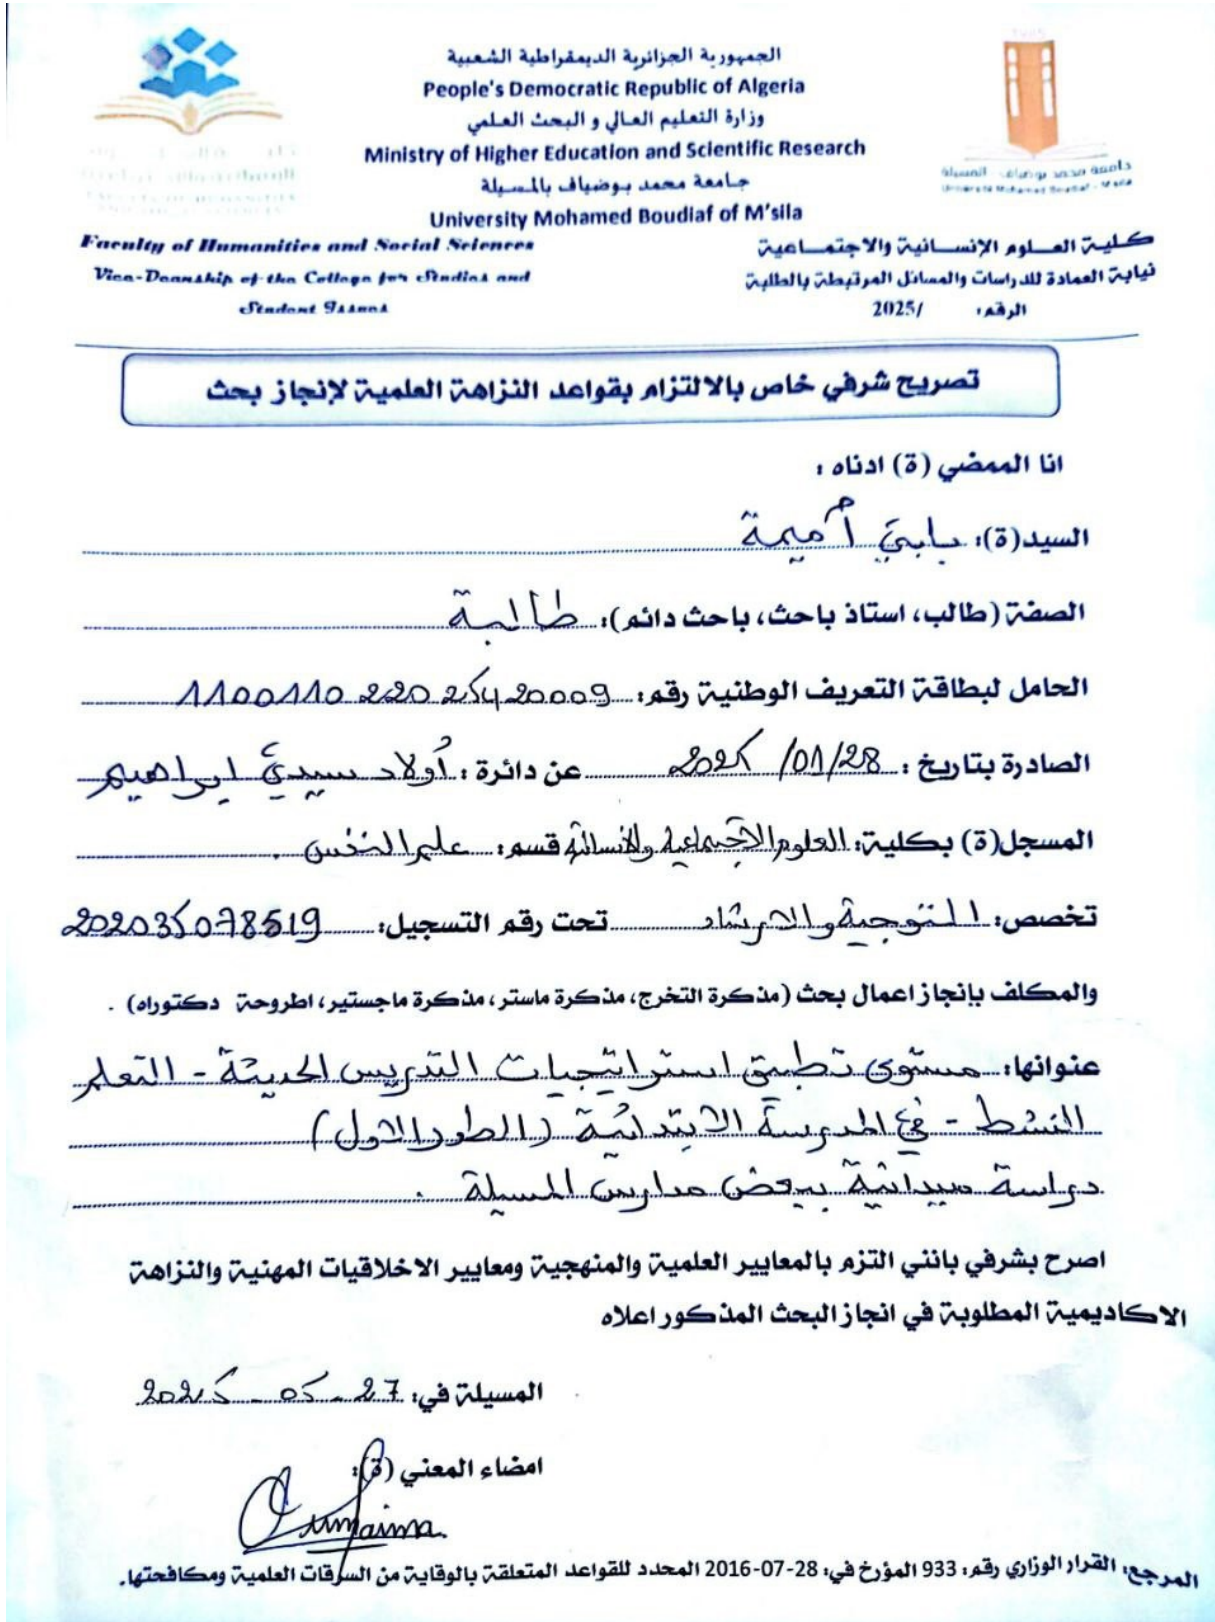 الجمهورية الجزائرية الديمقراطية الشعبية
People's Democratic Republic of Algeria
وزارة التعليم العالي و البحث العلمي
Ministry of Higher Education and Scientific Research
جامعة محمد بوضياف بالمسيلة
University Mohamed Boudiaf of M'sila
جامعة محمد بوضياف - المسيلة
Université Mohamed Boudiaf - M'sila
كلية العلوم الإنسانية والاجتماعية
Faculty of Humanities and Social Sciences
نيابة العمادة للدراسات والمسائل المرتبطة بالطلبة
Vice-Deanship of the College for Studies and
Student Issues
الرقم: /2025
تصريح شرفي خاص بالالتزام بقواعد النزاهة العلمية لإنجاز بحث
انا الممضي (ة) ادناه :
السيد(ة): بابي أميمة
الصفة (طالب، استاذ باحث، باحث دائم): طالبة
الحامل لبطاقة التعريف الوطنية رقم: 110011022025420009
الصادرة بتاريخ : 2025/01/28 عن دائرة : أولاد سيدي ابراهيم
المسجل(ة) بكلية: العلوم الاجتماعية والانسانية قسم: علم النفس .
تخصص: التوجية والارشاد تحت رقم التسجيل: 202035078519
والمكلف بإنجاز اعمال بحث (مذكرة التخرج، مذكرة ماستر، مذكرة ماجستير، اطروحة دكتوراه) .
عنوانها: مستوى تطبيق استراتيجيات التدريس الحديثة - التعلم
النشط - في المدرسة الابتدائية (الطور الاول)
دراسة ميدانية ببعض مدارس المسيلة .
اصرح بشرفي بانني التزم بالمعايير العلمية والمنهجية ومعايير الاخلاقيات المهنية والنزاهة
الاكاديمية المطلوبة في انجاز البحث المذكور اعلاه
المسيلة في: 2025-05-27
امضاء المعني (ة):
Oumaima
المرجع: القرار الوزاري رقم: 933 المؤرخ في: 28-07-2016 المحدد للقواعد المتعلقة بالوقاية من السرقات العلمية ومكافحتها.